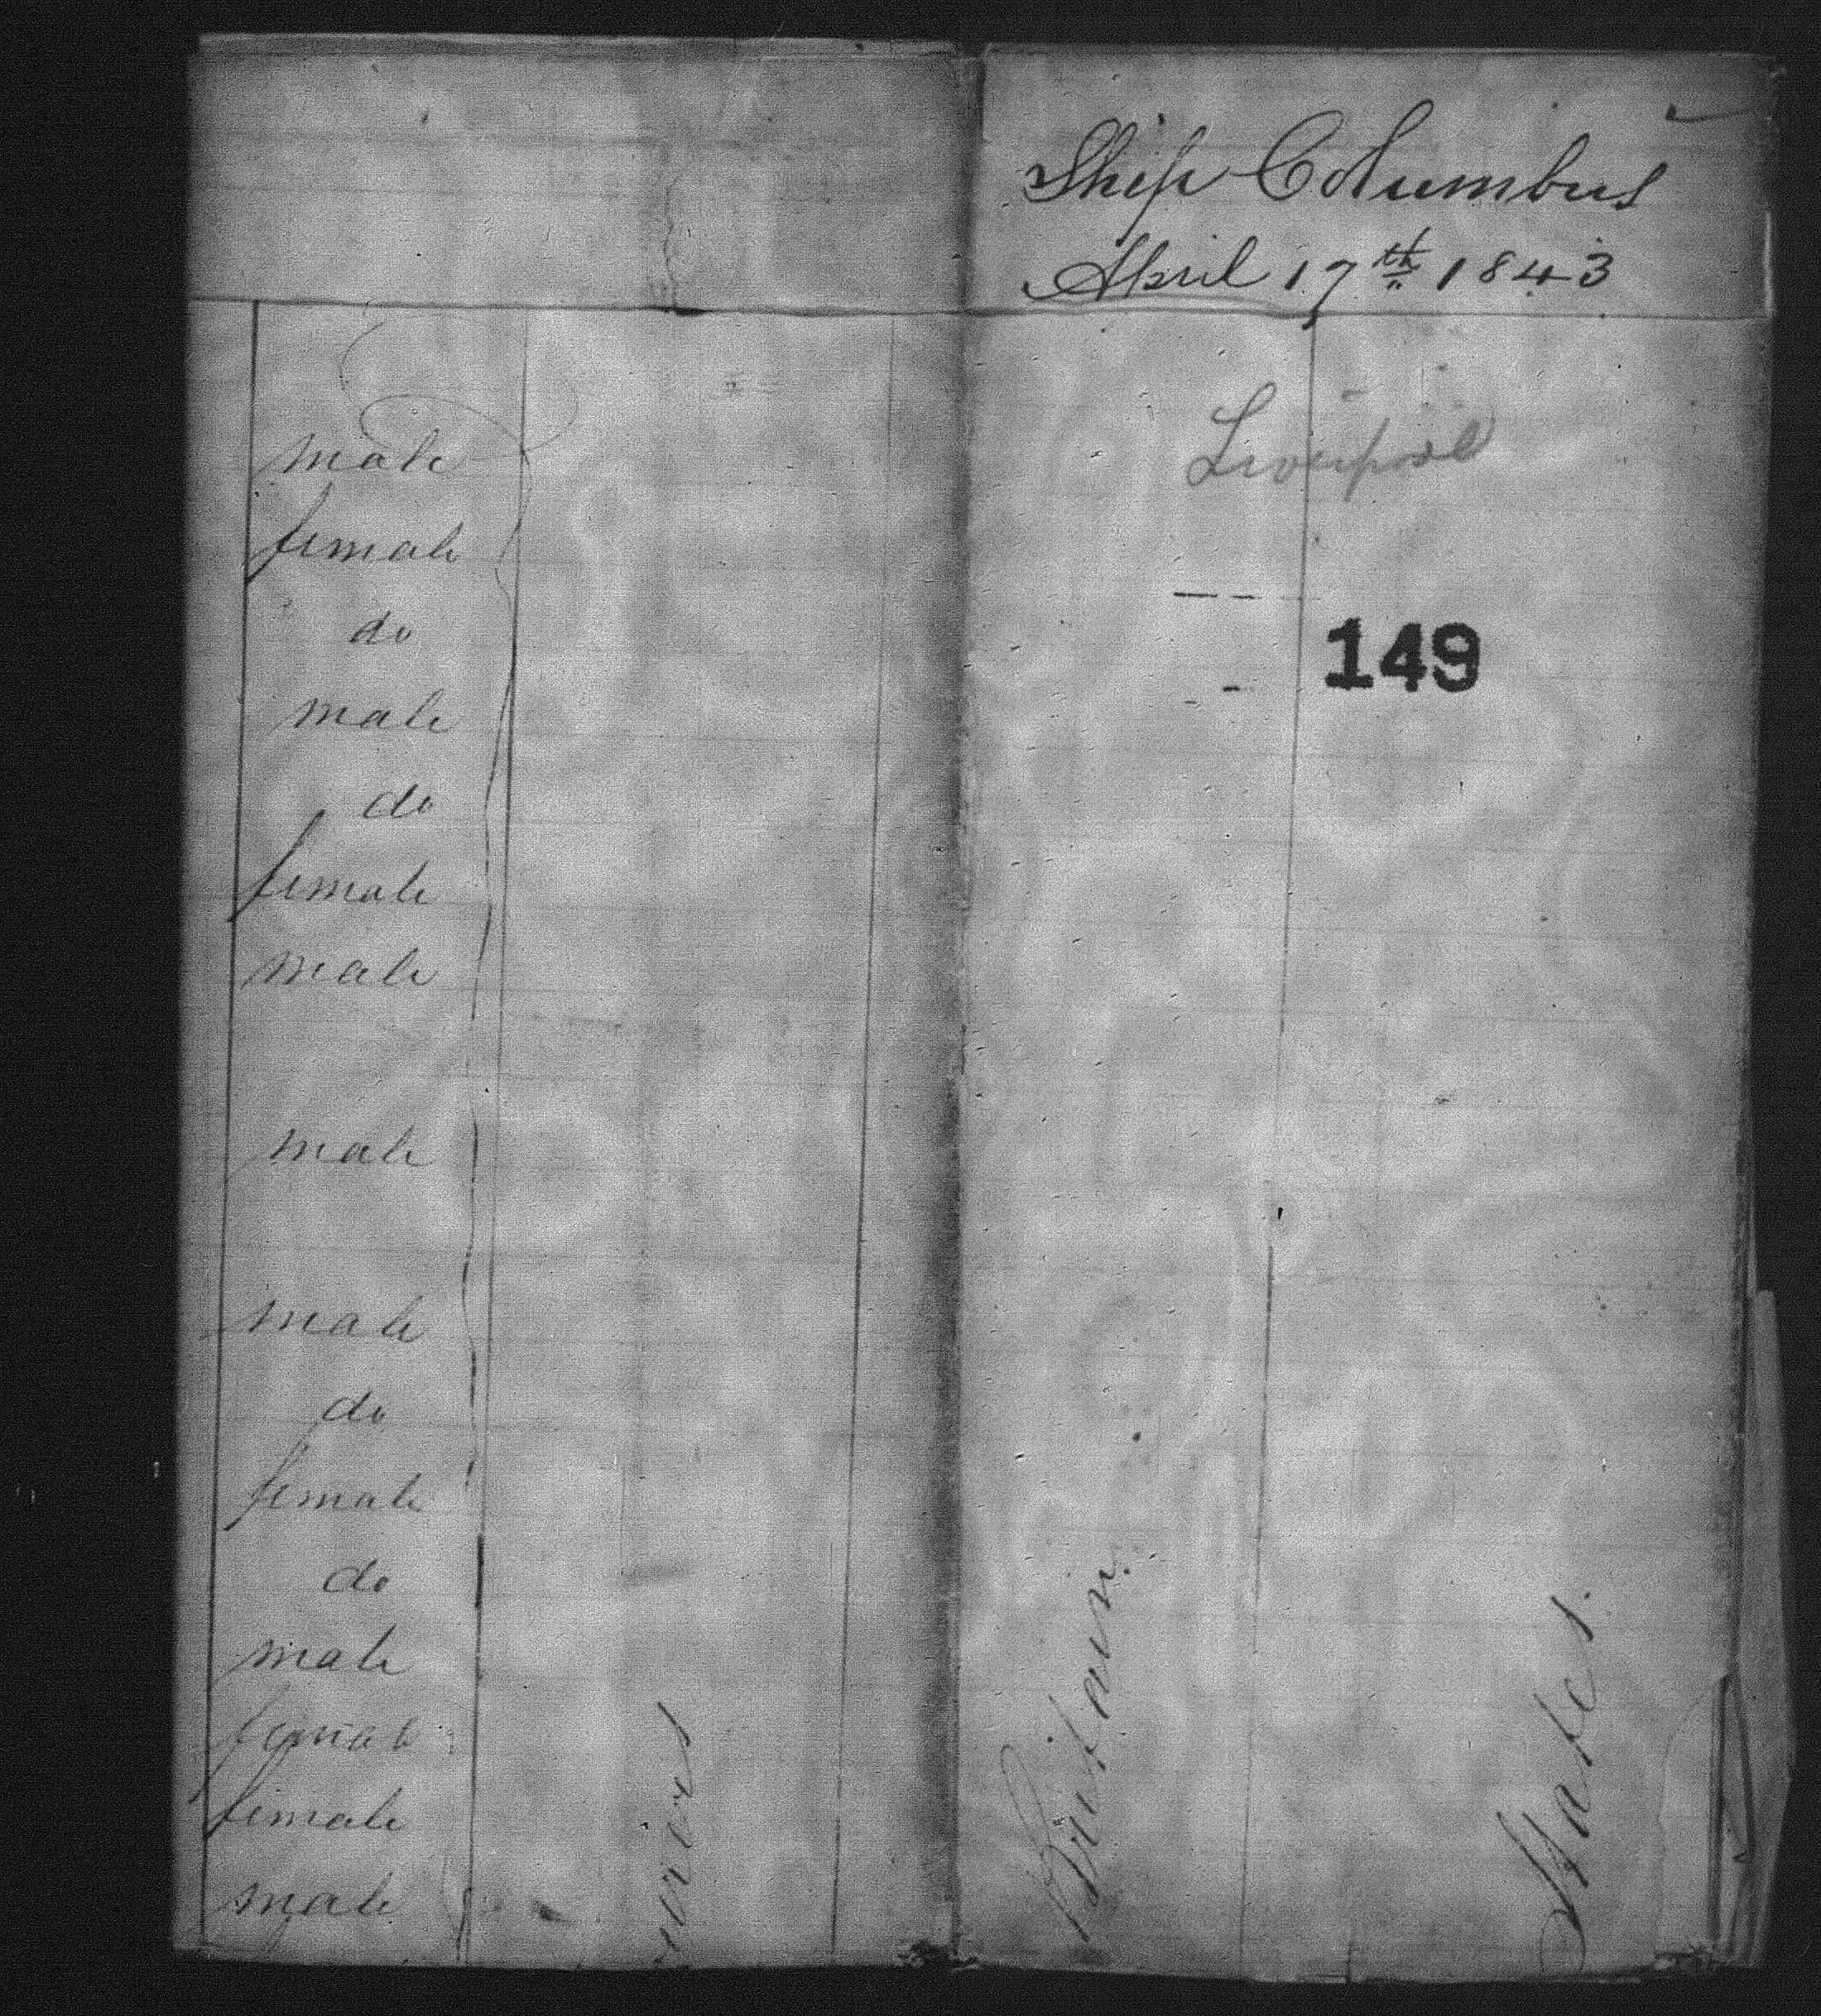 male
female
do
male
do
female
male
male
male
do
female
do
male
female
female
male
Ship Columbus
April 17th 1843
Liverpool
149
Britain.
States.